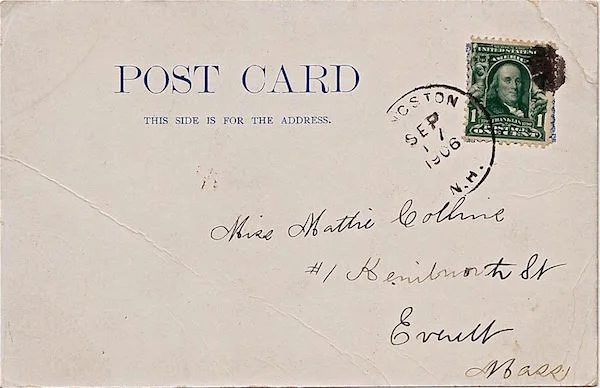 POST CARD
THIS SIDE IS FOR THE ADDRESS.
UNITED STATES
AMERICA
1 FRANKLIN 1
POSTAGE
ONE CENT
SEP
1906
N.H.
Miss Mattie Collins
#1 Kenilworth St
Everett
Mass